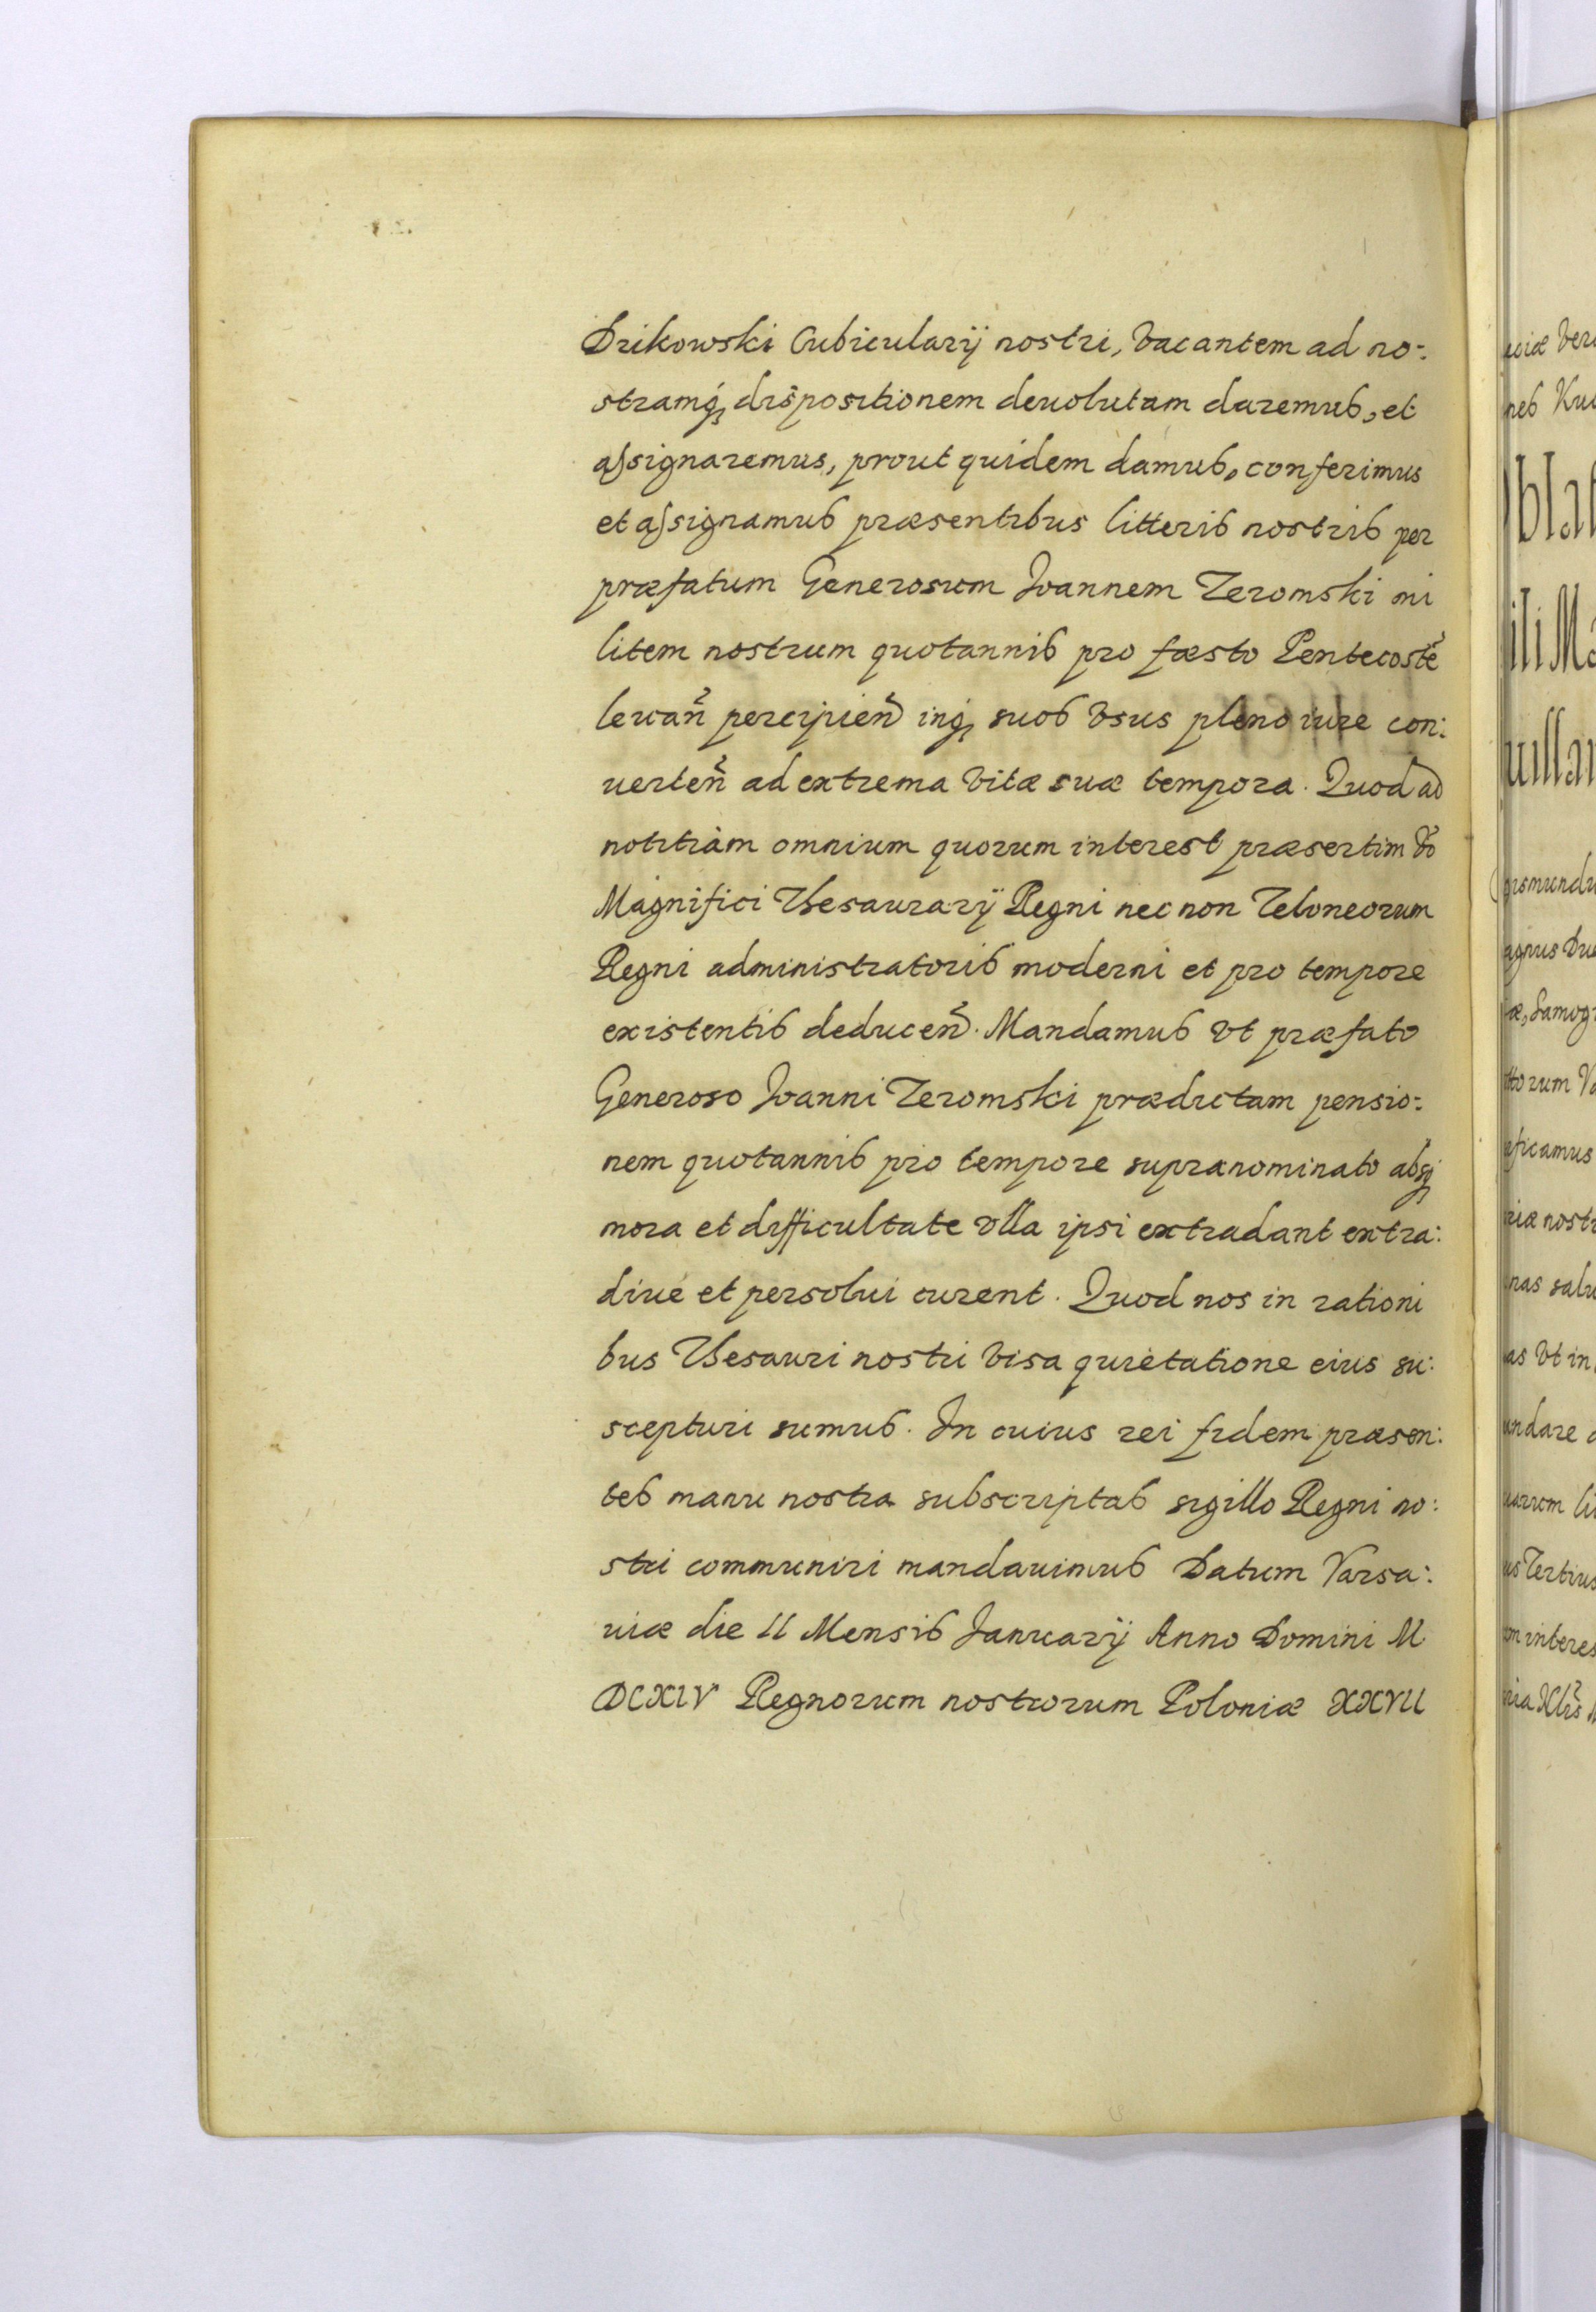 Drikowski Cubicularij nostri, vacantem ad no-:
stramq̨ dispositionem deuolutam daremus, et
assignaremus, prout quidem damus, conferimus
et assignamus præsentibus litteris nostris per
præfatum Generosum Joannem Zeromski mi
litem nostrum quotannis pro fæsto Pentecosteˀ
leuanˀ percipienˀ inq̨ suos vsus pleno iure con:
uertenˀ ad extrema vitæ suæ tempora. Quod ad
notitiam omnium quorum interest præsertim v̄o
Magnifici Thesaurarij Regni nec non Teloneorum
Regni administratoris moderni et pro tempore
existentis deducenˀ. Mandamus vt præfato
Generoso Joanni Zeromski prædictam pensio:
nem quotannis pro tempore supranominato absq̨
mora et difficultate vlla ipsi extradant extra:
diue et persolui curent. Quod nos in rationi
bus Thesauri nostri visa quietatione eius su:
scepturi sumus. In cuius rei fidem præsen:
tes manu nostra subscriptas sigillo Regni no:
stri communiri mandauimus Datum Varsa:
uiæ die II Mensis Januarij Anno Domini M
DCXIV Regnorum nostrorum Poloniæ XXVII